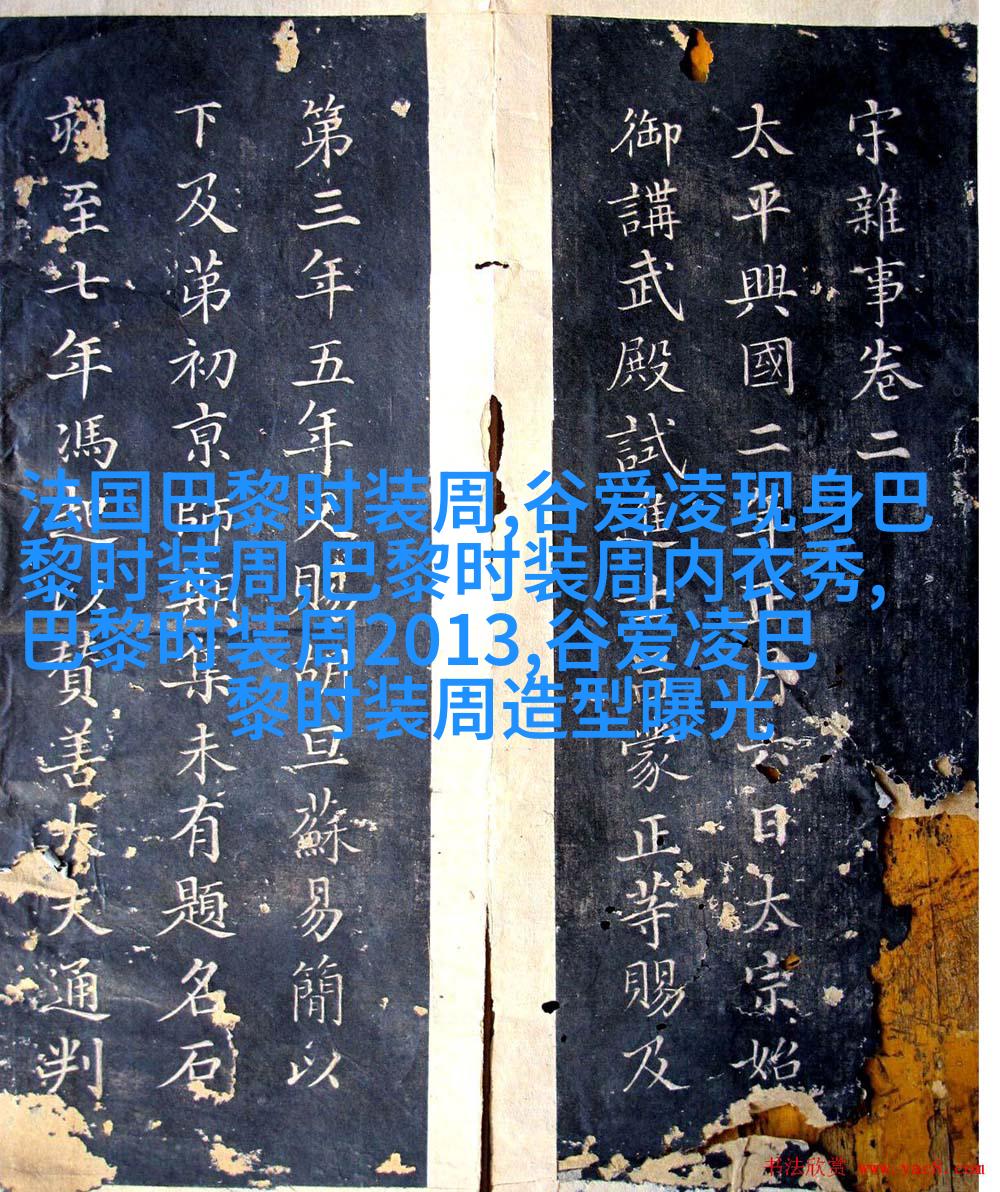 宋雜事卷二
太平興國二年正月六日太宗始
御講武殿試進士呂蒙正等賜及
第三年五年又賜
旦蘇易簡以
下及第初京師
集未有題名石
至七年馮起以贊善大夫通判
法国巴黎时装周,谷爱凌现身巴
黎时装周,巴黎时装周内衣秀,
巴黎时装周2013,谷爱凌巴
黎时装周造型曝光
书法欣赏 www.yac8.com